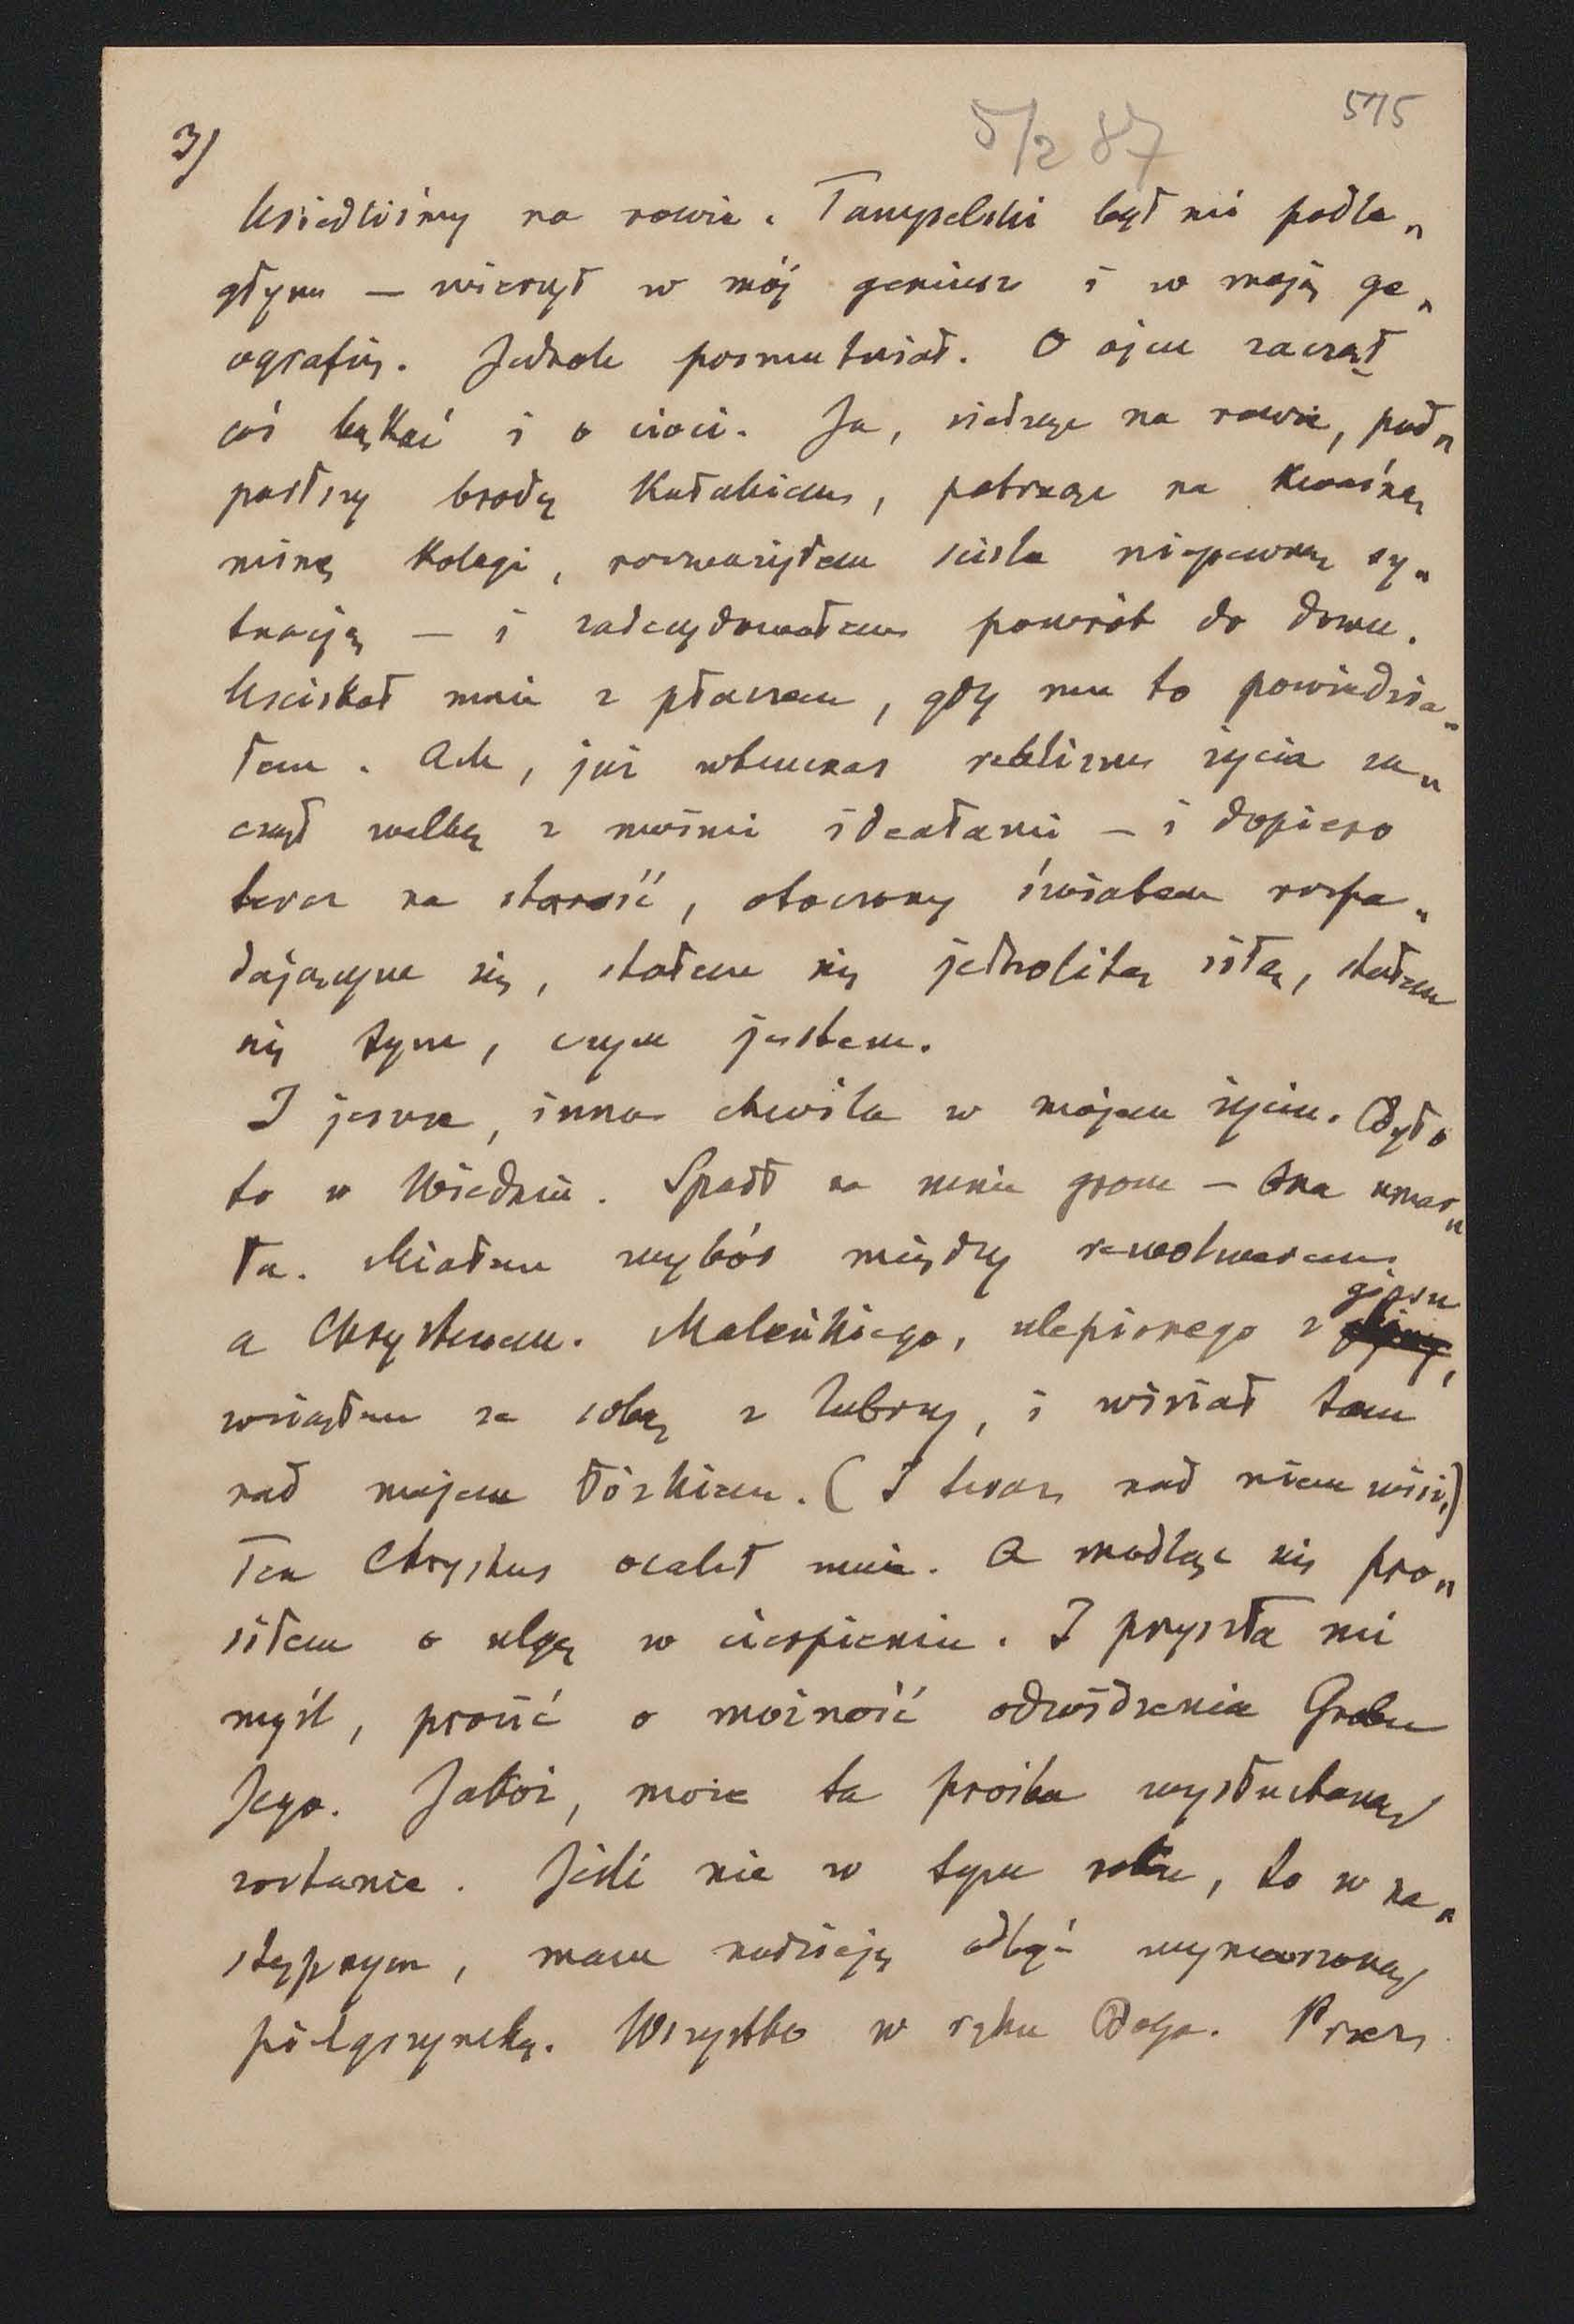 3/
5/2 87
575
Usiedliśmy na rowie. Tampelski był mi podle„
głym — wierzył w mój geniusz i w moją ge„
ografię. Jednak posmutniał. O ojcu zaczął
coś bąkać i o cioci. Ja, siedząc na rowie, pod„
parłszy brodę kułakiem, patrząc na kwaśną
minę kolegi, rozważyłem ściśle niepewną sy„
tuację — i zadecydowałem powrót do domu.
Uściskał mnie z płaczem, gdy mu to powiedzia„
łem. Ach, już wtenczas realizm życia za„
czął walkę z moimi ideałami — i dopiero
teraz na starość, otoczony światem rozpa„
dającym się, stałem się jednolitą siłą, stałem
się tym, czym jestem.
I jeszcze, inna chwila w mojem życiu. Było
to w Wiedniu. Spadł na mnie grom — Ona umar„
ła. Miałem wybór między rewolwerem
a Chrystusem. Maleńkiego, ulepionego z gipsu,
wziąłem ze sobą z Zubrzy, i wisiał tam
nad mojem łóżkiem. (I teraz nad niem wisi,)
Ten Chrystus ocalił mnie. A modląc się pro„
siłem o ulgę w cierpieniu. I przyszła mi
myśl, prosić o możność odwiedzenia Grobu
Jego. Jakoż, może ta prośba wysłuchaną
zostanie. Jeśli nie w tym roku, to w na„
stępnym, mam nadzieję odbyć wymarzoną
pielgrzymkę. Wszystko w ręku Boga. Przez